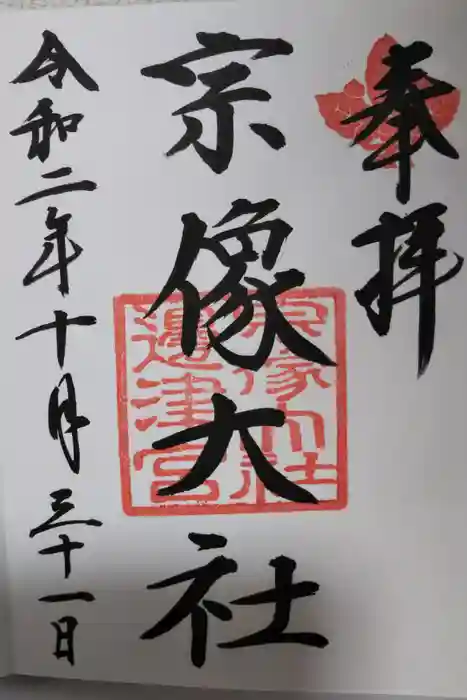 奉拝
宗像大社
宗像大社
邊津宮
令和二年十月三十一日